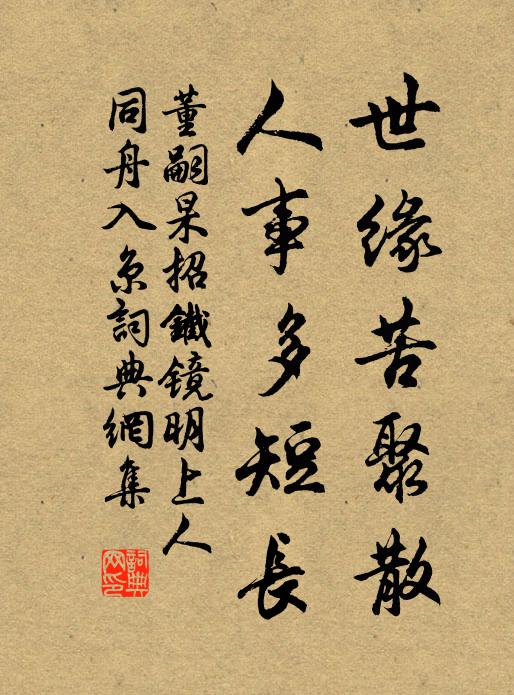 世緣苦聚散
人事多短長
董嗣杲招鐵镜明上人
同舟入京詞典網集
詞典
网印